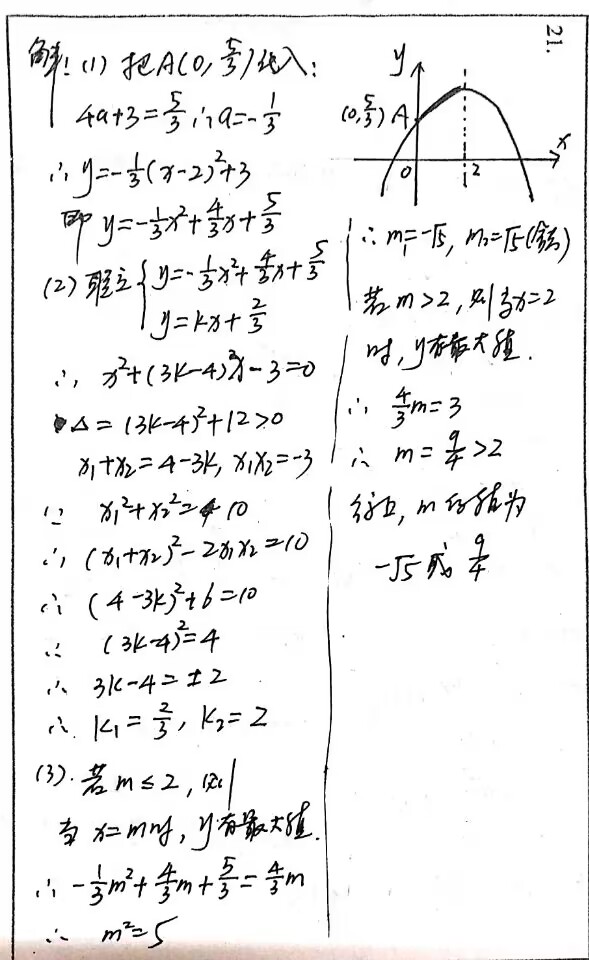 21.
解:(1)把A(0,5/3)代入:
4a+3=5/3 ∴a=-1/3
∴y=-1/3(x-2)²+3
即y=-1/3x²+4/3x+5/3
(2)联立{y=-1/3x²+4/3x+5/3
y=kx+2/3
∴ x²+(3k-4)x-3=0
△=(3k-4)²+12>0
x₁+x₂=4-3k, x₁x₂=-3
∵ x₁²+x₂²=10
∴(x₁+x₂)²-2x₁x₂=10
∴(4-3k)²+6=10
∴ (3k-4)²=4
∴ 3k-4=±2
∴ k₁=2/3, k₂=2
(3).若m≤2,则
当x=m时,y有最大值.
∴-1/3m²+4/3m+5/3=4/3m
∴ m²=5
y
(0,5/3) A
x
0
2
∴m₁=-√5, m₂=√5(舍去)
若m>2,则当x=2
时,y有最大值.
∴ 4/3m=3
∴ m=9/4>2
综上,m的值为
-√5或9/4